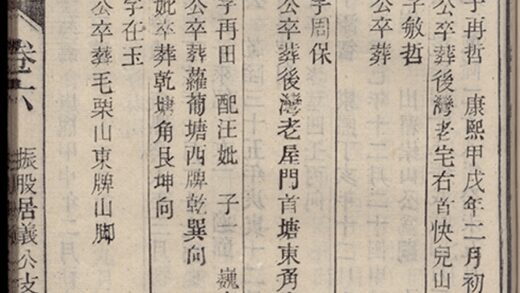 字再哲 康熙甲戌年二月初
公卒葬後灣老宅右首快兒山
字敏哲
公卒葬
字周保
公卒葬後灣老屋門首塘東角
字再田 配汪妣 子 巍
公卒葬蘿蔔塘西牌乾巽向
妣卒葬乾塘角艮坤向
字在玉
公卒葬毛栗山東牌山脚
卷六
振股居義公支